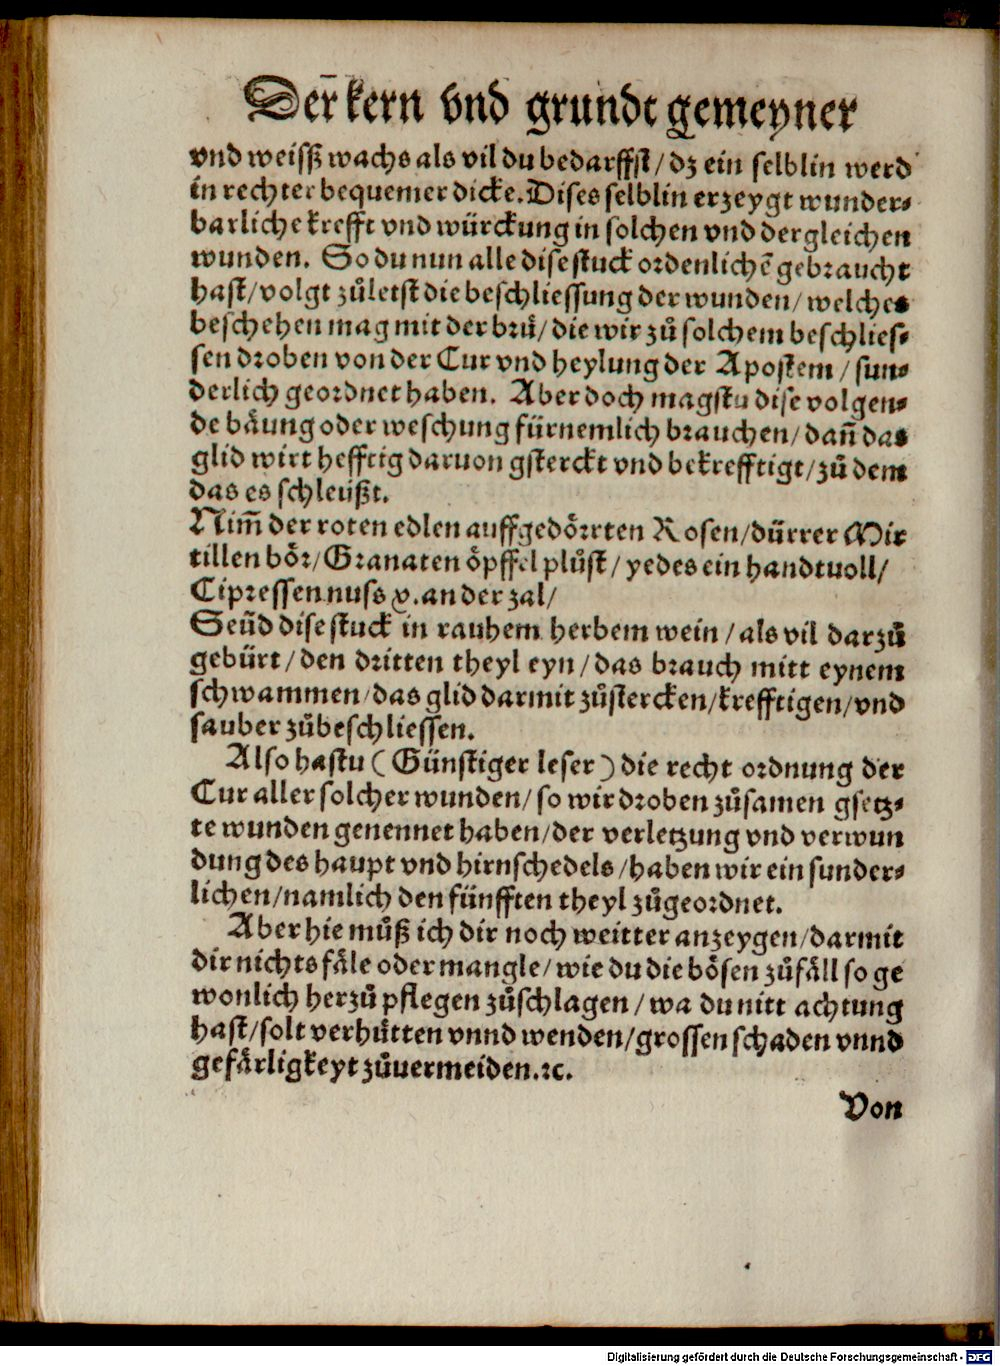 Der̄ kern vnd grundt gemeyner
vnd weisß wachs als vil du bedarffst / dz ein selblin werd
in rechter bequemer dicke. Dises selblin erzeygt wunder⸗
barliche krefft vnd würckung in solchen vnd dergleichen
wunden. So du nun alle dise stuck ordenlichē gebraucht
hast / volgt zůletst die beschliessung der wunden / welches
beschehen mag mit der brů / die wir zů solchem beschlies⸗
sen droben von der Cur vnd heylung der Apostem / sun⸗
derlich geordnet haben. Aber doch magstu dise volgen⸗
de båung oder weschung fürnemlich brauchen / dañ das
glid wirt hefftig daruon gsterckt vnd bekrefftigt / zů dem
das es schleüßt.
Nim̄ der roten edlen auffgedörrten Rosen / dürrer Mir
tillen bör / Granaten öpffel plůst / yedes ein handtuoll /
Cipressen nuss v. an der zal /
Seüd dise stuck in rauhem herbem wein / als vil darzů
gebürt / den dritten theyl eyn / das brauch mitt eynem
schwammen / das glid darmit zůstercken / krefftigen / vnd
sauber zůbeschliessen.
Also hastu ( Günstiger leser ) die recht ordnung der
Cur aller solcher wunden / so wir droben zůsamen gsetz⸗
te wunden genennet haben / der verletzung vnd verwun
dung des haupt vnd hirnschedels / haben wir ein sunder⸗
lichen / namlich den fünfften theyl zůgeordnet.
Aber hie můß ich dir noch weitter anzeygen / darmit
dir nichts fåle oder mangle / wie du die bösen zůfåll so ge
wonlich herzů pflegen zůschlagen / wa du nitt achtung
hast / solt verhůtten vnnd wenden / grossen schaden vnnd
gefårligkeyt zůuermeiden. ⁊c.
Von
Digitalisierung gefördert durch die Deutsche Forschungsgemeinschaft - DFG